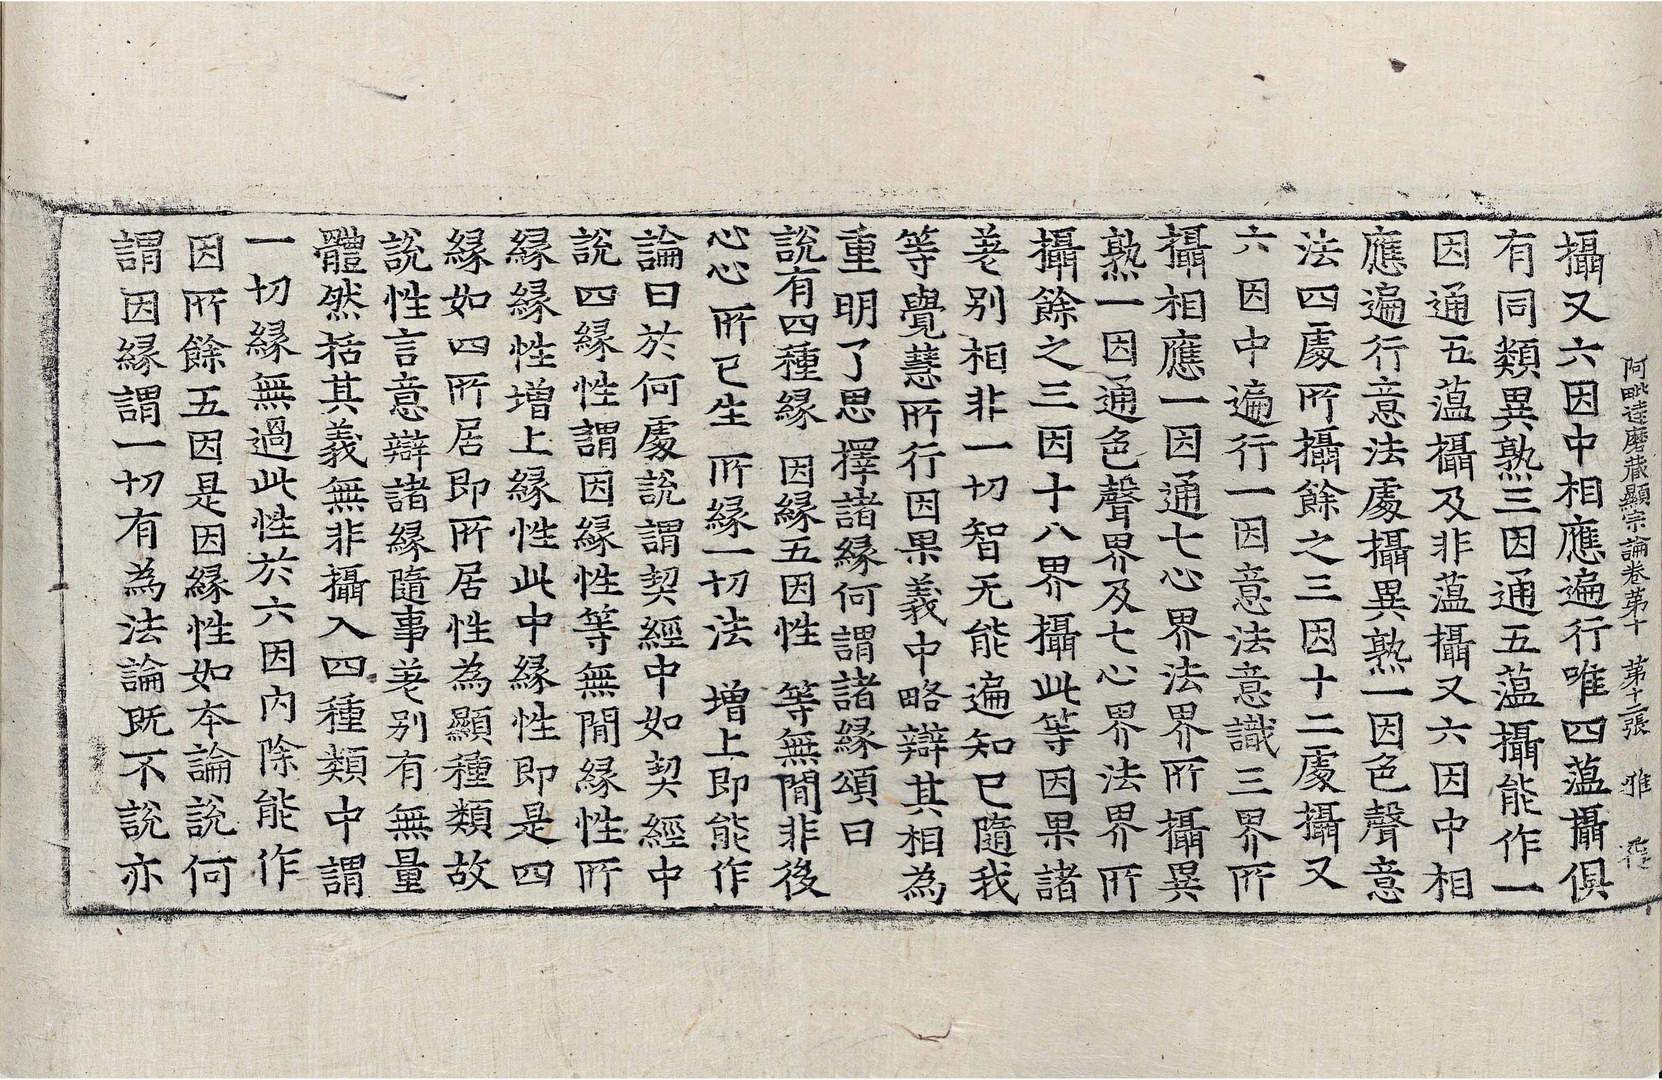 阿毗達磨藏顯宗論卷第十 第十二張 雅
攝又六因中相應遍行唯四蕰攝俱
有同類異熟三因通五蕰攝能作一
因通五蕰攝及非蕰攝又六因中相
應遍行意法處攝異熟一因色聲意
法四處所攝餘之三因十二處攝又
六因中遍行一因意法意識三界所
攝相應一因通七心界法界所攝異
熟一因通色聲界及七心界法界所
攝餘之三因十八界攝此等因果諸
差别相非一切智无能遍知已隨我
等覺慧所行因果義中略辯其相為
重明了思擇諸緣何謂諸緣頌曰
說有四種緣 因緣五因性 等無閒非後
心心所已生 所緣一切法 增上即能作
論曰於何處說謂契經中如契經中
說四緣性謂因緣性等無閒緣性所
緣緣性增上緣性此中緣性即是四
緣如四所居即所居性為顯種類故
說性言意辯諸緣隨事差别有無量
體然括其義無非攝入四種類中謂
一切緣無過此性於六因內除能作
因所餘五因是因緣性如本論說何
謂因緣謂一切有為法論既不說亦